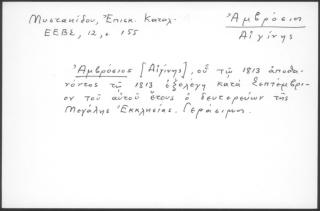 Μυστακίδου, Ἐπισκ. Καταλ.
ΕΕΒΣ, 12, σ 155
Ἀμβρόσιος
Αἰγίνης
Ἀμβρόσιος [Αἰγίνης], οὗ τῷ 1813 ἀποθα-
νόντος τῷ 1813 ἐξελέγη κατὰ Σεπτέμβρι-
ον τοῦ αὐτοῦ ἔτους ὁ δευτερεύων τῆς
Μεγάλης Ἐκκλησίας. Γεράσιμος.